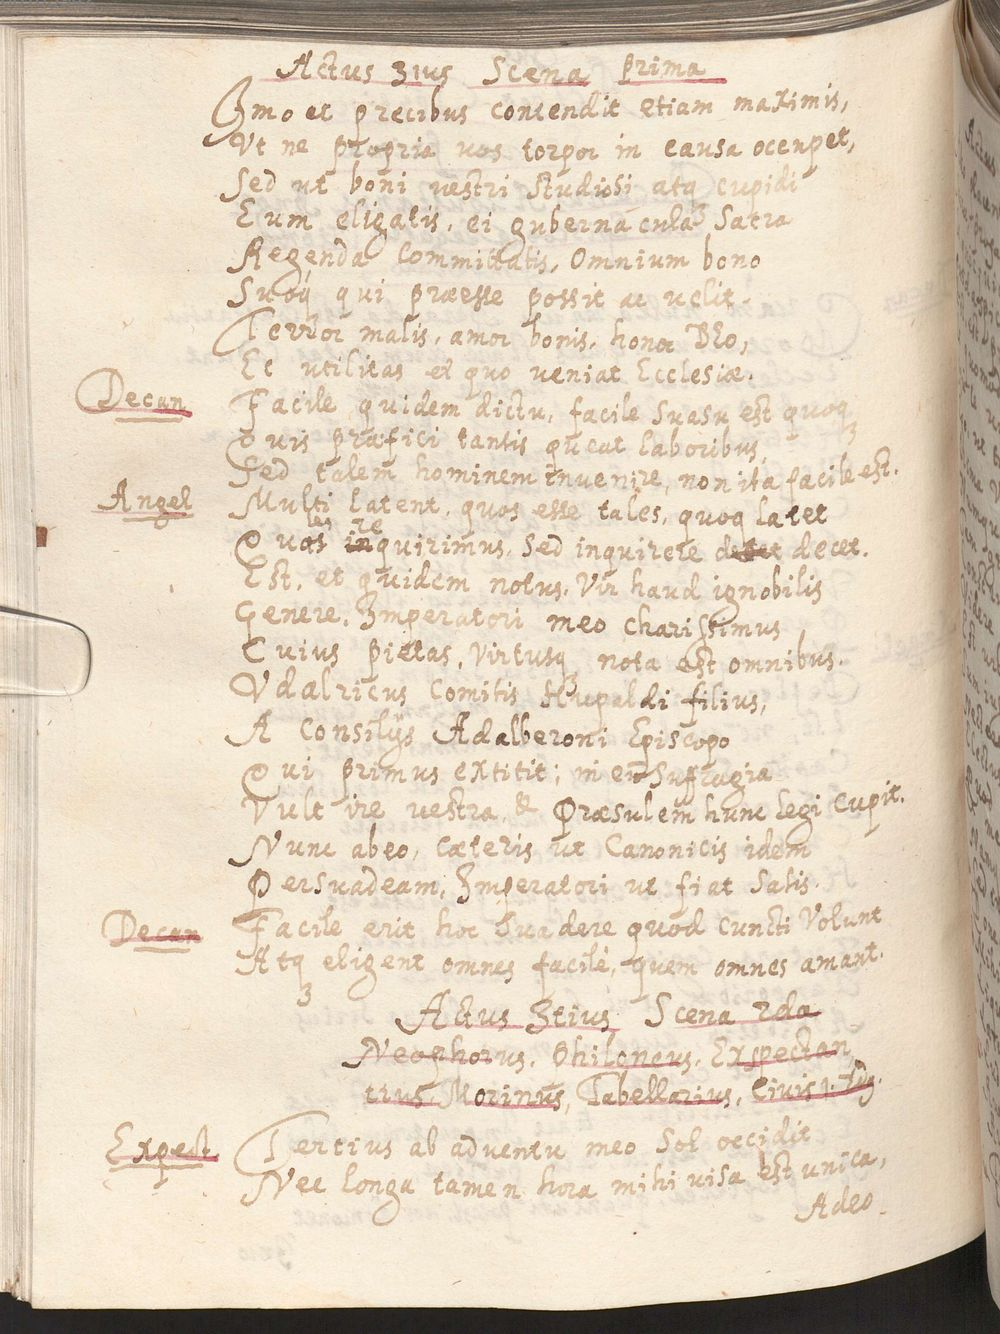 Actus 3ius Scena prima
Imo et precibus contendit etiam maximis,
Vt ne propria vos torpor in causa occupet,
Sed ut boni vestri studiosi atq cupidi
Eum eligatis, ei gubernacula Sacra
Regenda Committatis, Omnium bono
Suoq qui præesse possit ac velit.
Terror malis, amor bonis, honor DEo,
Et utilitas ex quo veniat Ecclesiæ.
Decan Facile quidem dictu, facile suasu est quoq
Quis præfici tantis queat laboribus,
Sed talem hominem invenire, non ita facile est.
Angel Multi latent, quos esse tales, quoq latet
Quales inrequirimus, Sed inquirere decet.
Est, et quidem notus, Vir haud ignobilis
Genere, Imperatori meo charissimus
Cuius pietas, Virtusq nota est omnibus.
Vdalricus Comitis Hupaldi filius,
A Consilijs Adalberoni Episcopo
Qui primus extitit; in eu Suffragia
Vult ire vestra, & Præsulem hunc legi Cupit.
Nunc abeo, Cæteris ut Canonicis idem
Persuadeam, Imperatori ut fiat Satis.
Decan Facile erit hoc Suadere quod Cuncti Volunt
Atq eligent omnes facilè, quem omnes amant.
Actus 3tius Scena 2da
Neophorus. Philoneus. Expectan
tius. Morinus, Tabellarius, Civis 1. 2dg.
Expect Tertius ab adventu meo Sol occidit
Nec longa tamen hora mihi visa est unica,
Adeo